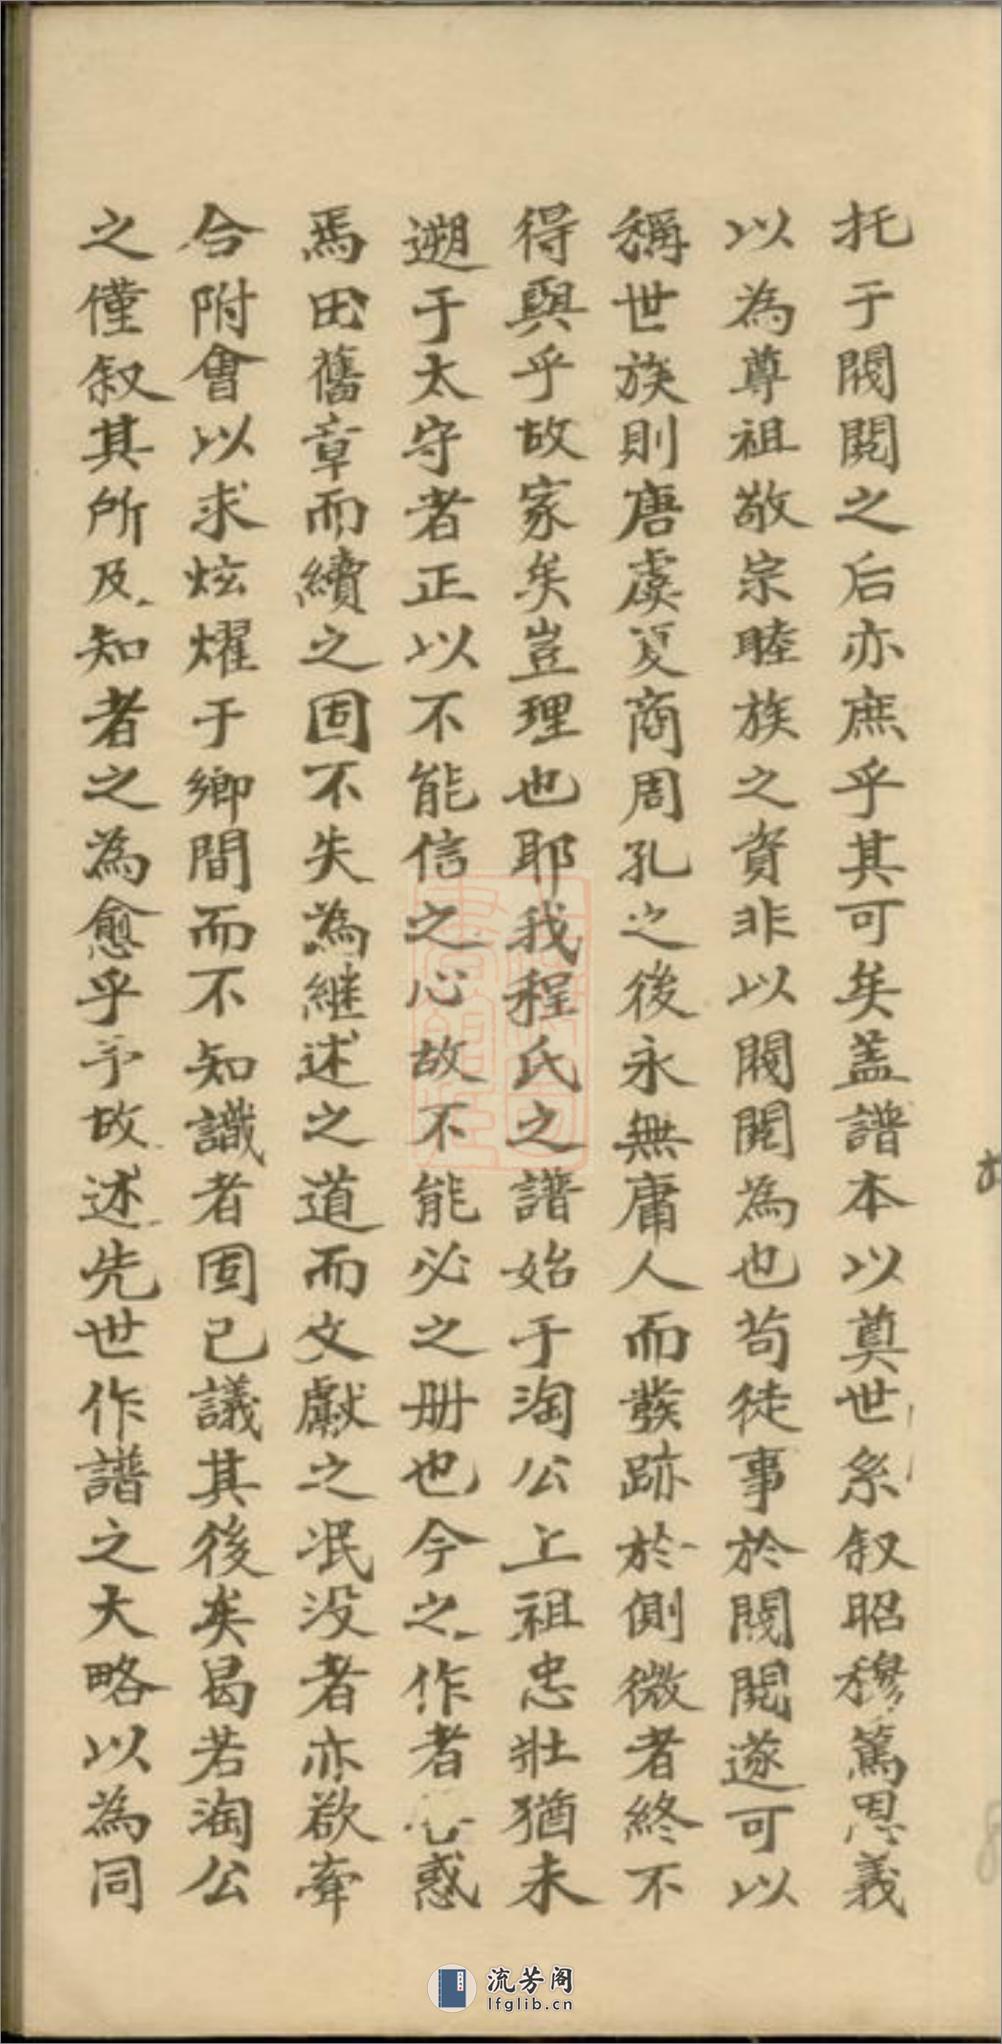 托于閥閱之后亦庶乎其可矣盖譜本以奠世系叙昭穆篤恩義
以為尊祖敬宗睦族之資非以閥閱為也苟徒事於閥閱遂可以
稱世族則唐虞夏商周孔之後永無庸人而發跡於側微者終不
得與乎故家矣豈理也耶我程氏之譜始于淘公上祖忠壯猶未
遡于太守者正以不能信之心故不能必之册也今之作者惑
焉因舊章而續之固不失為継述之道而文獻之冺没者亦欲牽
合附會以求炫燿于鄉間而不知識者固已議其後矣曷若淘公
之僅叙其所及知者之為愈乎予故述先世作譜之大略以為同
流芳阁
lfglib.cn